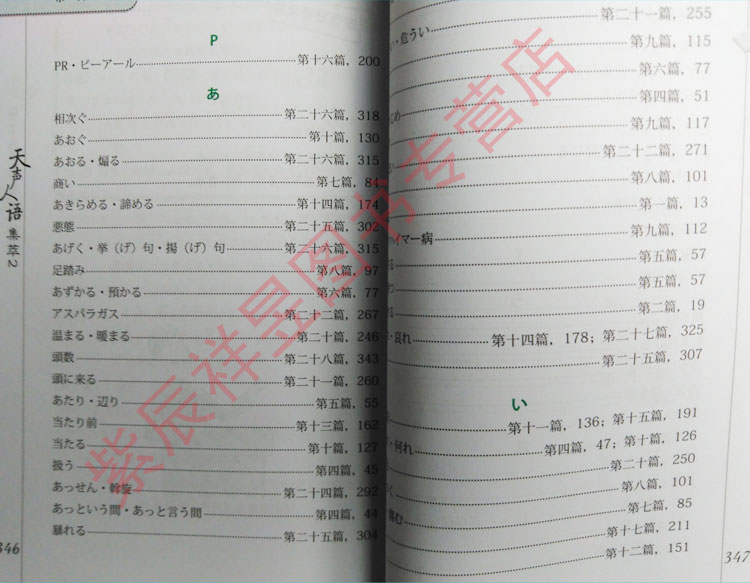 P
PR・ピーアール 第十六篇，200
あ
相次ぐ 第二十六篇，318
あおぐ 第十篇，130
あおる・煽る 第二十六篇，315
商い 第七篇，84
あきらめる・諦める 第十四篇，174
悪態 第二十五篇，302
あげく・挙（げ）句・揚（げ）句 第二十六篇，315
足踏み 第八篇，97
あずかる・預かる 第六篇，77
アスパラガス 第二十二篇，267
温まる・暖まる 第二十篇，246
頭数 第二十八篇，343
頭に来る 第二十一篇，260
あたり・辺り 第五篇，55
当たり前 第十三篇，162
当たる 第十篇，127
扱う 第四篇，45
あっせん・斡旋 第二十四篇，292
あっという間・あっと言う間 第四篇，44
暴れる 第二十五篇，304
天声人语
集萃2
346
第二十一篇，255
い・危うい 第九篇，115
第六篇，77
第四篇，51
じめ 第九篇，117
第二十二篇，271
第八篇，101
第一篇，13
イマー病 第九篇，112
第五篇，57
第五篇，57
第二篇，19
・哀れ 第十四篇，178；第二十七篇，325
第二十五篇，307
い
第十一篇，136；第十五篇，191
・何れ 第四篇，47；第十篇，126
第二十篇，250
く 第八篇，101
む 第七篇，85
第十七篇，211
第十二篇，151
347
紫辰祥昱图书专营店